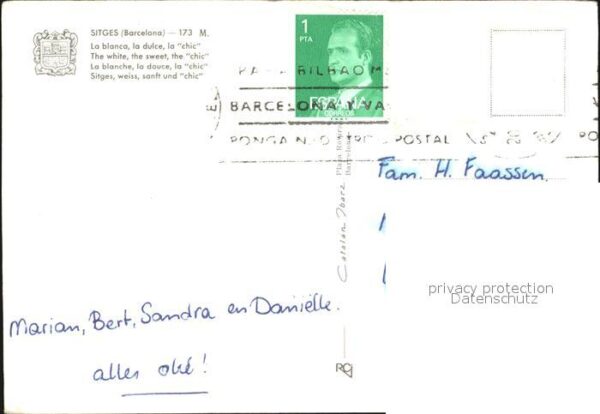 SITGES (Barcelona) — 173 M.
La blanca, la dulce, la "chic"
The white, the sweet, the "chic"
La blanche, la douce, la "chic"
Sitges, weiss, sanft und "chic"
1
PTA
ESPAÑA
CORREOS
PARA BILBAO M
BARCELONA Y VA
PONGA N DTRO POSTAL
PO
Fam. H. Faassen.
Catalan Ibarz
Plaza
Barcelona
privacy protection
Datenschutz
Marian, Bert, Sandra en Daniëlle.
alles oké!
RG